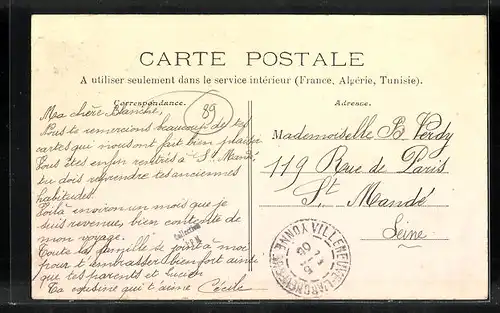 CARTE POSTALE
A utiliser seulement dans le service intérieur (France, Algérie, Tunisie).
Correspondance.
39
Ma chère Blanche,
Nous te remercions beaucoup de tes
cartes qui nous ont fait bien plaisir
Vous êtes enfin rentrés à St Mandé
tu dois reprendre tes anciennes
habitudes.
Voilà environ un mois que je
suis revenue, bien contente de
mon voyage.
Toute la famille se joint à moi
pour t'embrasser bien fort ainsi
que tes parents et Lucien
Ta cousine qui t'aime Cécile
Adresse.
Mademoiselle B. Verdy
119 Rue de Paris
St Mandé
Seine
VILLENEUVE-L'ARCHEVÊQUE YONNE
06